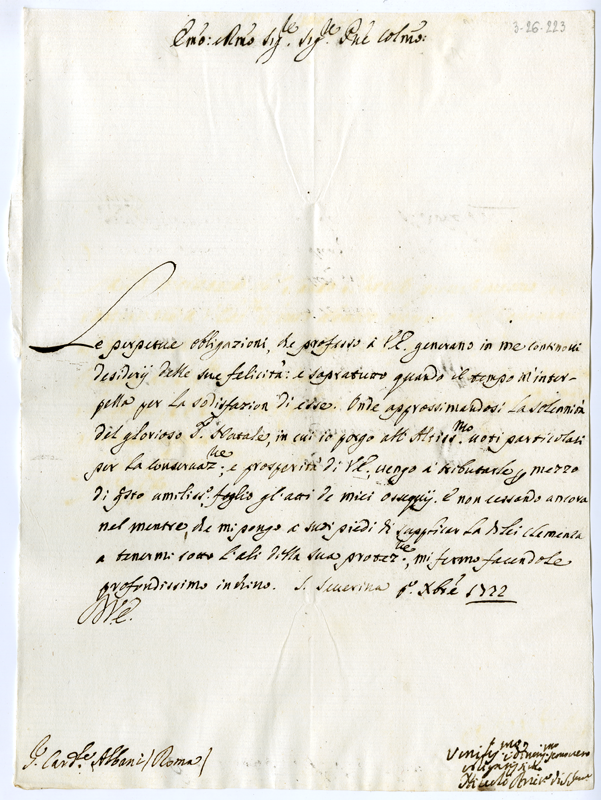 3-26-223
Em̃o: e Rm̃o Sig.re Sig.re Pñe Colm̃o:
Le perpetue obligazioni, che professo à V.E. generano in me continovi
desiderij delle sue felicità: e sopratutto quando il tempo m'inter-
pella per la sodisfazion di esse. Onde approssimandosi la solennità
del glorioso S. Natale, in cui io porgo all'Altiss.mo voti particolari
per la conservaz.ne, e prosperità di V.E., vengo à tributarle p mezzo
di qsto umiliss.o foglio gl'atti de miei ossequij. E non cessando ancora
nel mentre, che mi pongo a suoi piedi di supplicar la di lei clemenza
a tenermi sotto l'ali della sua protez.ne, mi fermo facendole
profondissimo inchino. S. Severina p.o Xbre 1722
D.V.E.
S. Card.le Albani (Roma)
Umiliss.mo e
Nicolò